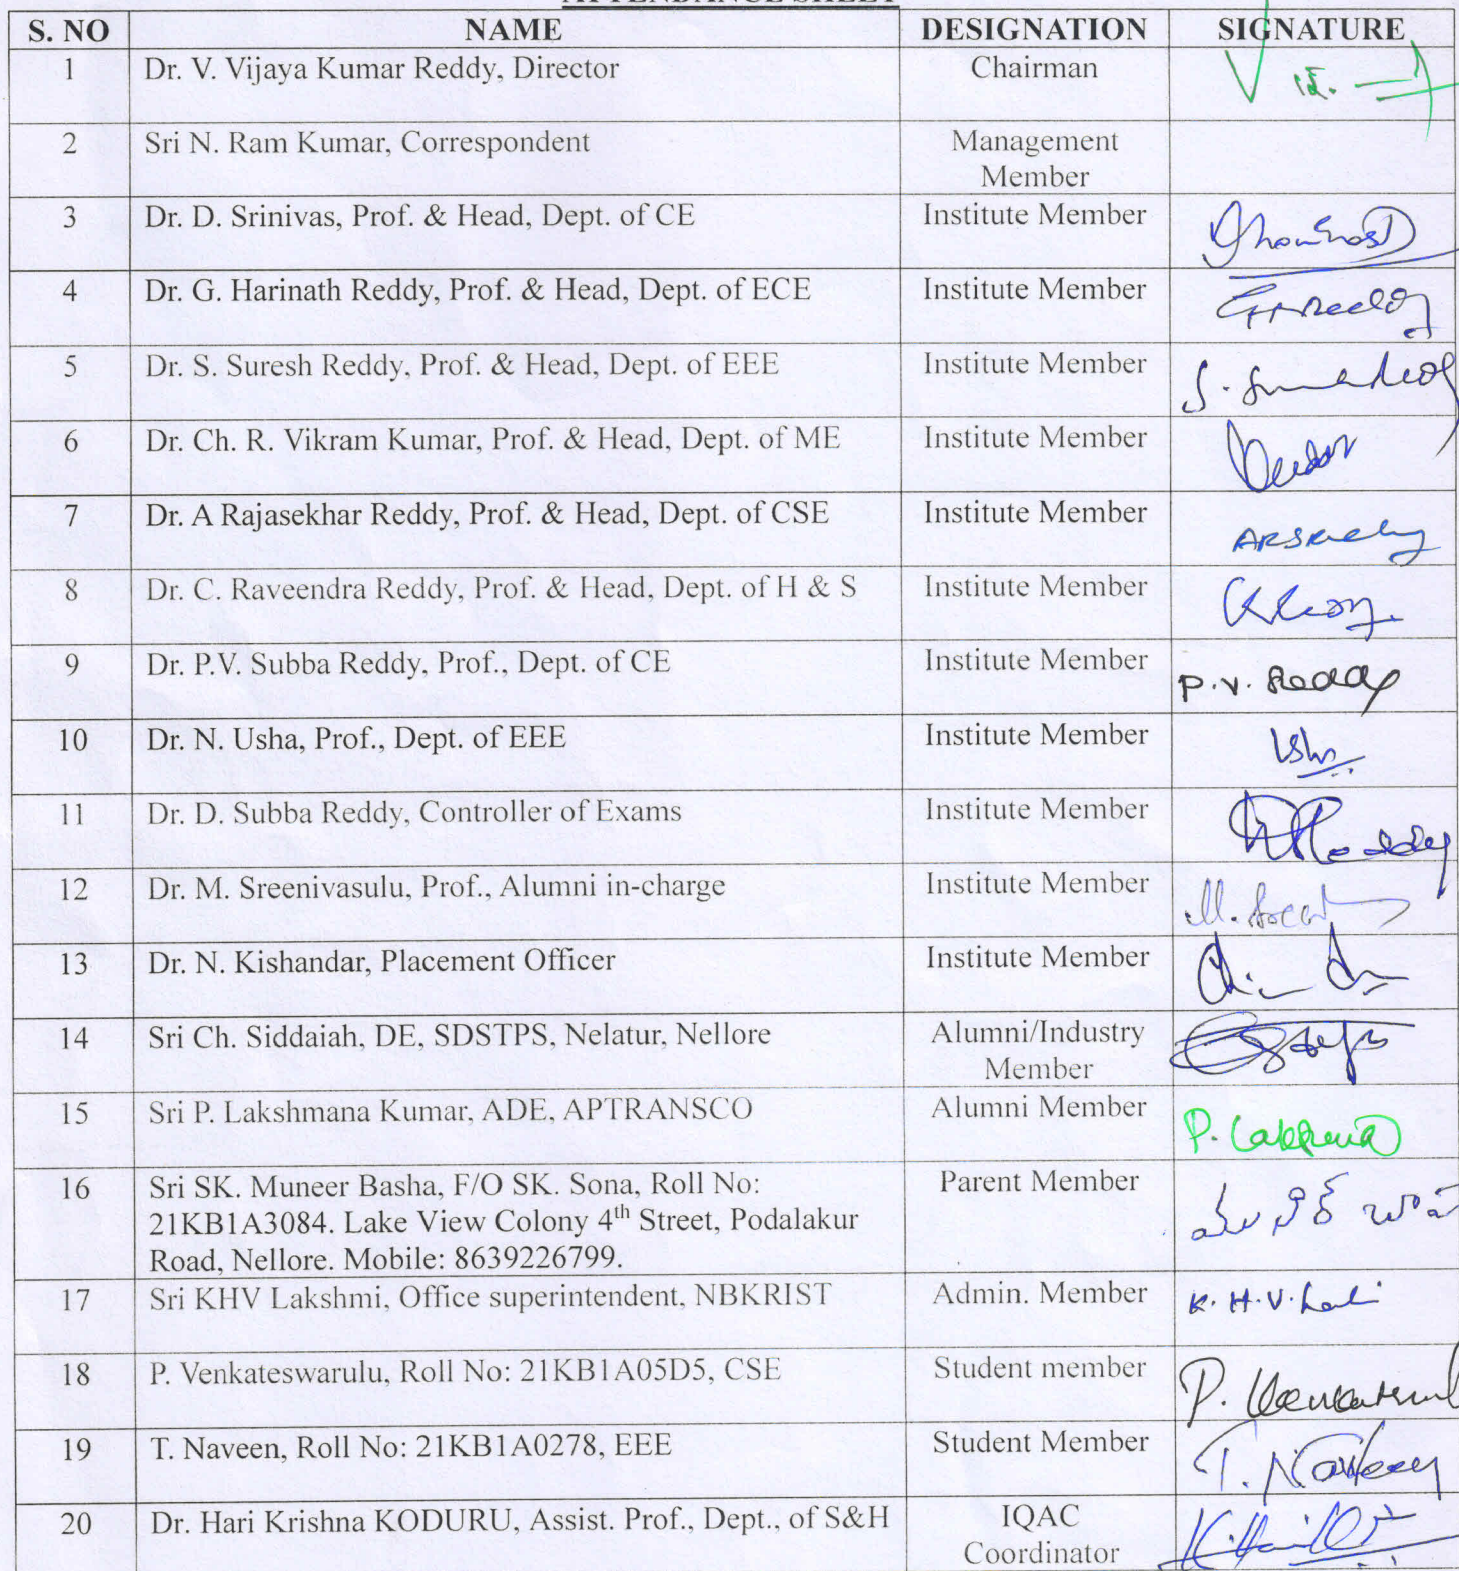 ATTENDANCE SHEET
S. NO NAME DESIGNATION SIGNATURE
1 Dr. V. Vijaya Kumar Reddy, Director Chairman
2 Sri N. Ram Kumar, Correspondent Management
Member
3 Dr. D. Srinivas, Prof. & Head, Dept. of CE Institute Member
4 Dr. G. Harinath Reddy, Prof. & Head, Dept. of ECE Institute Member
5 Dr. S. Suresh Reddy, Prof. & Head, Dept. of EEE Institute Member
6 Dr. Ch. R. Vikram Kumar, Prof. & Head, Dept. of ME Institute Member
7 Dr. A Rajasekhar Reddy, Prof. & Head, Dept. of CSE Institute Member
8 Dr. C. Raveendra Reddy, Prof. & Head, Dept. of H & S Institute Member
9 Dr. P.V. Subba Reddy, Prof., Dept. of CE Institute Member P.V. Reddy
10 Dr. N. Usha, Prof., Dept. of EEE Institute Member
11 Dr. D. Subba Reddy, Controller of Exams Institute Member
12 Dr. M. Sreenivasulu, Prof., Alumni in-charge Institute Member
13 Dr. N. Kishandar, Placement Officer Institute Member
14 Sri Ch. Siddaiah, DE, SDSTPS, Nelatur, Nellore Alumni/Industry
Member
15 Sri P. Lakshmana Kumar, ADE, APTRANSCO Alumni Member
16 Sri SK. Muneer Basha, F/O SK. Sona, Roll No: Parent Member
21KB1A3084. Lake View Colony 4th Street, Podalakur
Road, Nellore. Mobile: 8639226799.
17 Sri KHV Lakshmi, Office superintendent, NBKRIST Admin. Member
18 P. Venkateswarulu, Roll No: 21KB1A05D5, CSE Student member
19 T. Naveen, Roll No: 21KB1A0278, EEE Student Member T. Naveen
20 Dr. Hari Krishna KODURU, Assist. Prof., Dept., of S&H IQAC
Coordinator